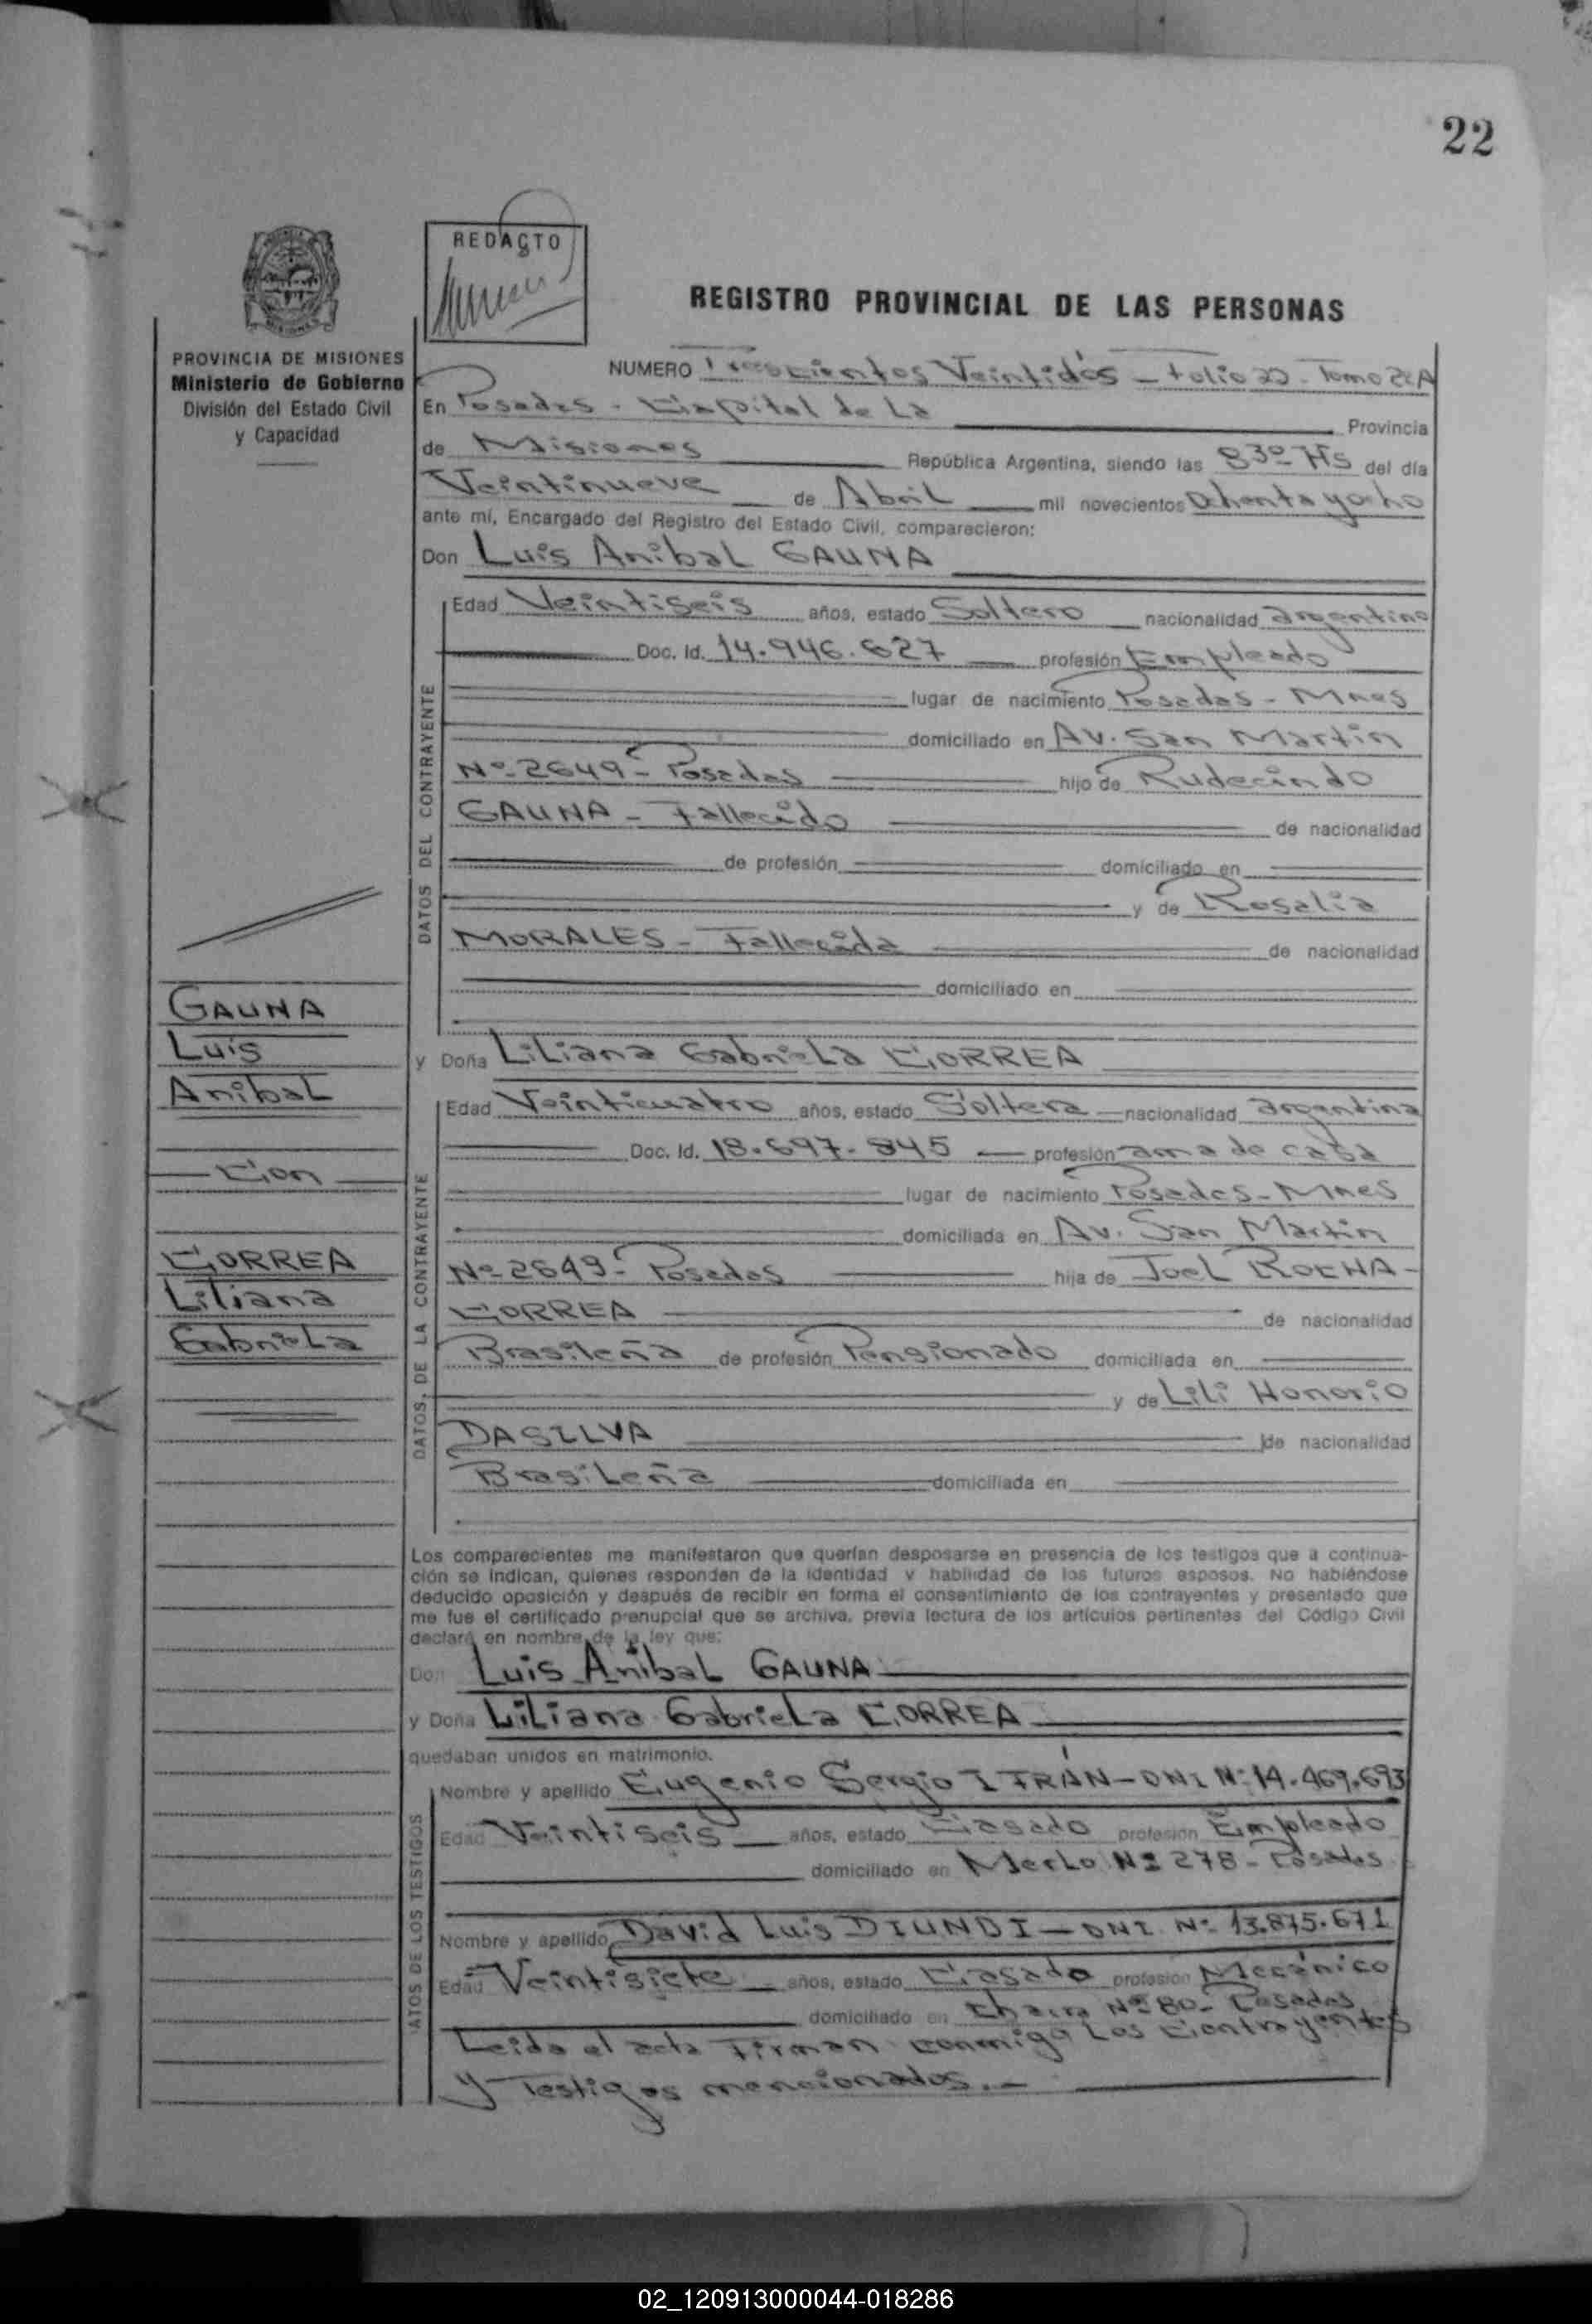 22
REDACTO
REGISTRO PROVINCIAL DE LAS PERSONAS
PROVINCIA DE MISIONES
Ministerio de Gobierno
División del Estado Civil
y Capacidad
NUMERO Trescientos Veintidós - Folio 22 - Tomo 2º A
En Posadas - Capital de La Provincia
de Misiones República Argentina, siendo las 830 Hs del día
Veintinueve de Abril mil novecientos Ochenta y ocho
ante mí, Encargado del Registro del Estado Civil, comparecieron:
Don Luis Anibal GAUNA
DATOS DEL CONTRAYENTE
Edad Veintiseis años, estado Soltero nacionalidad argentino
Doc. Id. 14.946.627 profesión Empleado
lugar de nacimiento Posadas - Mnes
domiciliado en Av. San Martin
Nº 2649 - Posadas hijo de Rudecindo
GAUNA - Fallecido de nacionalidad
de profesión domiciliado en
y de Rosalia
MORALES - Fallecida de nacionalidad
domiciliado en
y Doña Liliana Gabriela CORREA
DATOS DE LA CONTRAYENTE
Edad Veinticuatro años, estado Soltera nacionalidad argentina
Doc. Id. 18.697.845 profesión ama de casa
lugar de nacimiento Posadas - Mnes
domiciliada en Av. San Martin
Nº 2649 - Posadas hija de Joel ROCHA -
CORREA de nacionalidad
Brasileña de profesión Pensionado domiciliada en
y de Lili Honorio
DASILVA de nacionalidad
Brasileña domiciliada en
GAUNA
Luis
Anibal
Con
CORREA
Liliana
Gabriela
Los comparecientes me manifestaron que querían desposarse en presencia de los testigos que a continua-
ción se indican, quienes responden de la identidad y habilidad de los futuros esposos. No habiéndose
deducido oposición y después de recibir en forma el consentimiento de los contrayentes y presentado que
me fue el certificado prenupcial que se archiva, previa lectura de los artículos pertinentes del Código Civil
declaré en nombre de la ley que:
Don Luis Anibal GAUNA
y Doña Liliana Gabriela CORREA
quedaban unidos en matrimonio.
DATOS DE LOS TESTIGOS
Nombre y apellido Eugenio Sergio ITRÁN - DNI Nº 14.469.693
Edad Veintiseis años, estado Casado profesión Empleado
domiciliado en Merlo Nº 278 - Posadas
Nombre y apellido David Luis DIUNDI - DNI. Nº 13.875.671
Edad Veintisiete años, estado Casado profesión Mecánico
domiciliado en Chacra Nº 80 - Posadas
Leida el acta Firman conmigo Los Contrayentes
y Testigos mencionados. -
02_120913000044-018286